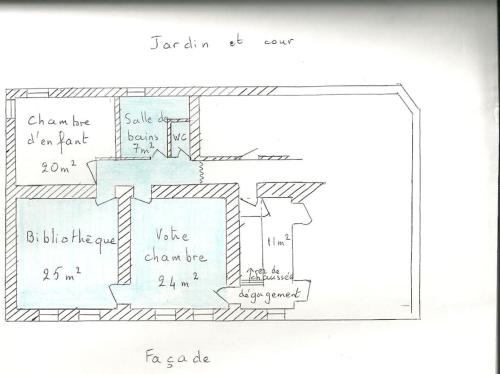 Jardin et cour
Chambre
d'enfant
20 m²
Salle de
bains
7m²
WC
Bibliothèque
25 m²
Votre
chambre
24 m²
11 m²
↑ rez de
chaussée
dégagement
Façade